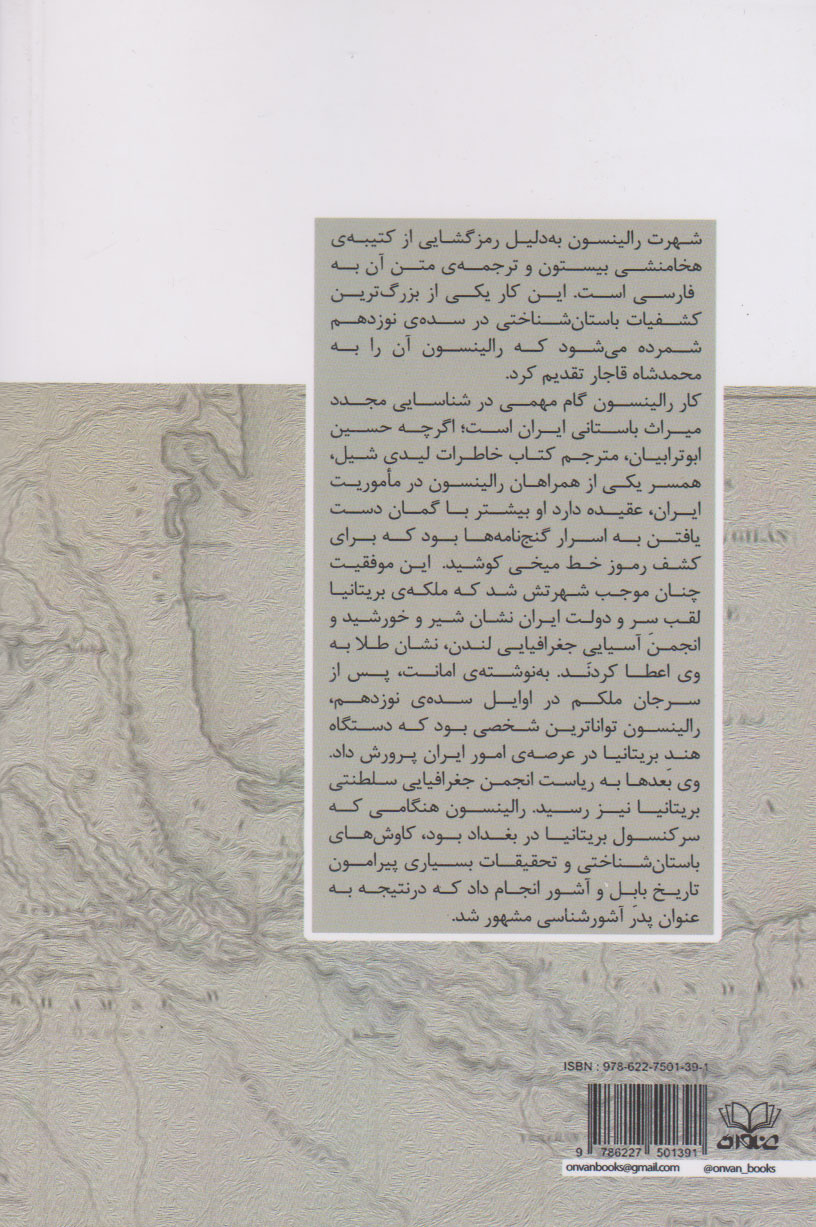 شهرت رالینسون به‌دلیل رمزگشایی از کتیبه‌ی
هخامنشی بیستون و ترجمه‌ی متن آن به
فارسی است. این کار یکی از بزرگ‌ترین
کشفیات باستان‌شناختی در سده‌ی نوزدهم
شمرده می‌شود که رالینسون آن را به
محمدشاه قاجار تقدیم کرد.
کار رالینسون گام مهمی در شناسایی مجدد
میراث باستانی ایران است؛ اگرچه حسین
ابوترابیان، مترجم کتاب خاطرات لیدی شیل،
همسر یکی از همراهان رالینسون در مأموریت
ایران، عقیده دارد او بیشتر با گمان دست
یافتن به اسرار گنج‌نامه‌ها بود که برای
کشف رموز خط میخی کوشید. این موفقیت
چنان موجب شهرتش شد که ملکه‌ی بریتانیا
لقب سر و دولت ایران نشان شیر و خورشید و
انجمن آسیایی جغرافیایی لندن، نشان طلا به
وی اعطا کردند. به‌نوشته‌ی امانت، پس از
سرجان ملکم در اوایل سده‌ی نوزدهم،
رالینسون تواناترین شخصی بود که دستگاه
هند بریتانیا در عرصه‌ی امور ایران پرورش داد.
وی بعدها به ریاست انجمن جغرافیایی سلطنتی
بریتانیا نیز رسید. رالینسون هنگامی که
سرکنسول بریتانیا در بغداد بود، کاوش‌های
باستان‌شناختی و تحقیقات بسیاری پیرامون
تاریخ بابل و آشور انجام داد که درنتیجه به
عنوان پدر آشورشناسی مشهور شد.
GILAN
KHAMSEH
ISBN : 978-622-7501-39-1
9 786227 501391
عنوان
onvanbooks@gmail.com @onvan_books